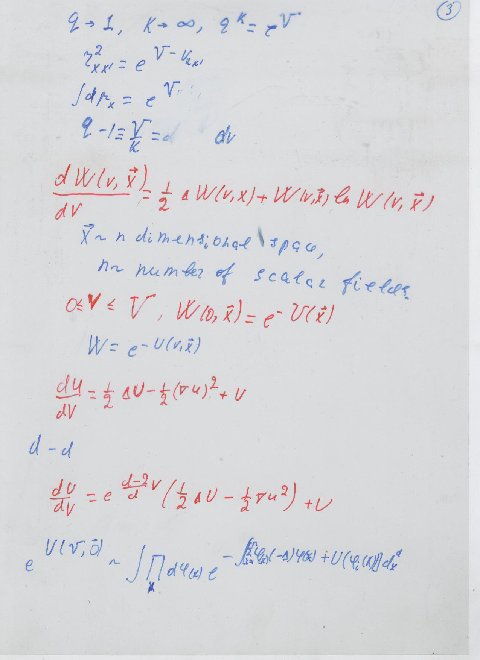 ③
q → 1, K → ∞, q^K = e^V
η²_xx' = e^(V - V_xx')
∫dμ_x = e^V
q - 1 ≡ V/K = d dv
dW(v, x⃗)/dV = 1/2 ΔW(v,x) + W(v,x⃗) ln W(v, x⃗)
x⃗ ~ n dimensional space,
n ~ number of scalar fields.
0 ≤ v ≤ V, W(0, x⃗) = e^-U(x⃗)
W = e^-U(v,x⃗)
dU/dV = 1/2 ΔU - 1/2 (∇u)² + U
d - d
dU/dV = e^((d-2)/d V) (1/2 ΔU - 1/2 ∇u²) + U
e^U(V,0⃗) ~ ∫ ∏_x dφ(x) e^-∫[φ(x)(-Δ)φ(x) + U(φ_i(x))] d^d x